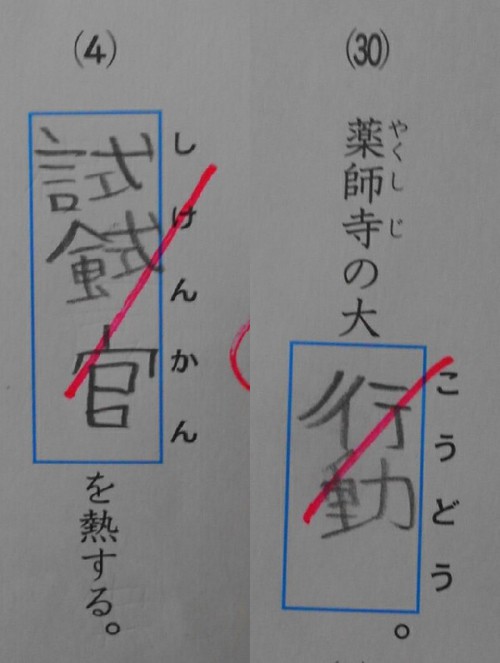 (4)
しけんかん
試官を熱する。
(30)
やくしじ
こうどう
薬師寺の大行動。